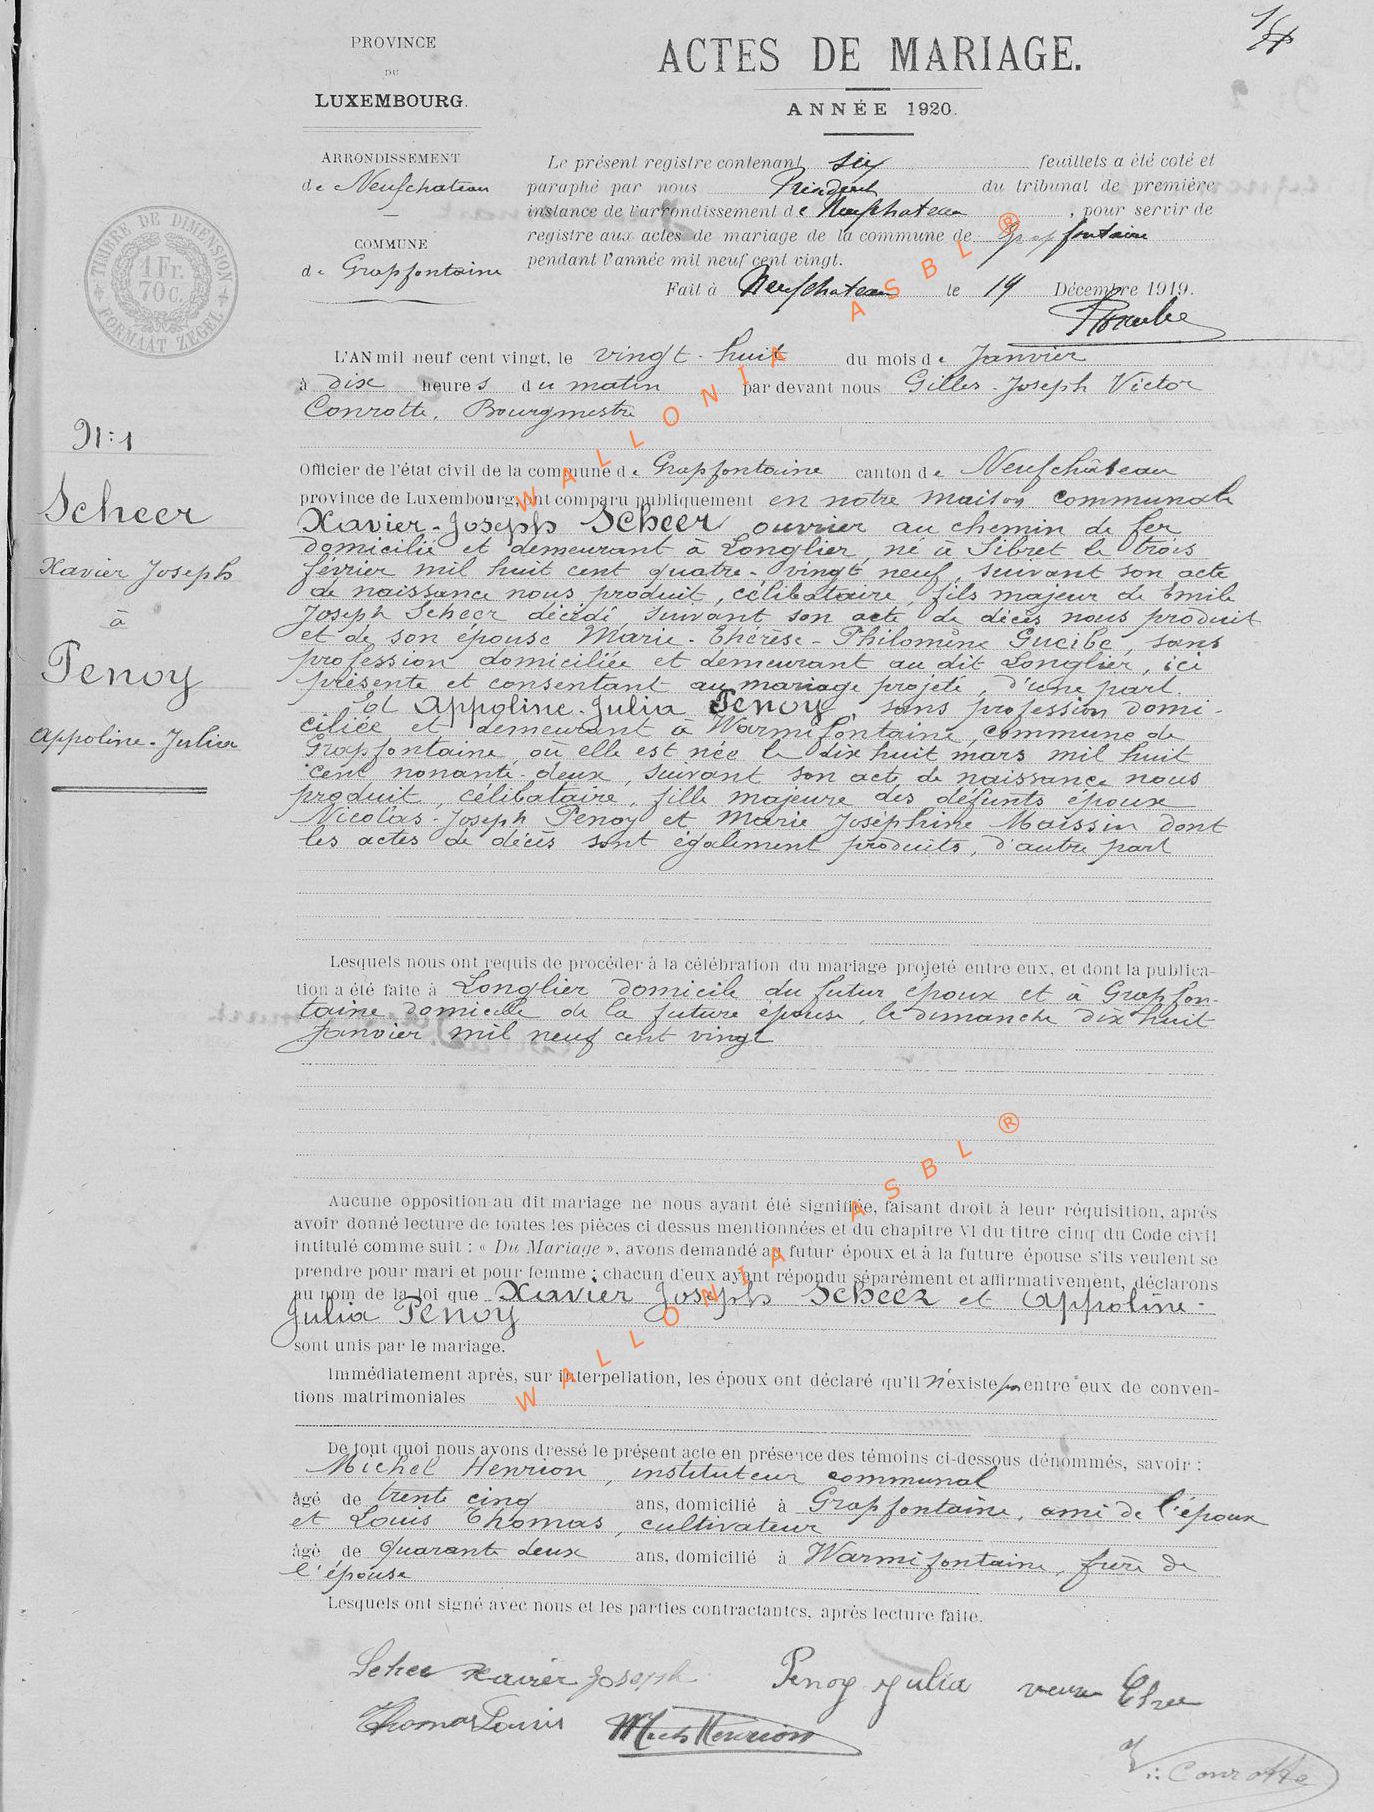 PROVINCE
DU
LUXEMBOURG.
ARRONDISSEMENT
de Neufchateau
COMMUNE
de Grapfontaine
TIMBRE DE DIMENSION
1 Fr.
70 C.
FORMAAT ZEGEL
ACTES DE MARIAGE.
ANNÉE 1920.
Le présent registre contenant six feuillets a été coté et
paraphé par nous Président du tribunal de première
instance de l'arrondissement de Neufchateau, pour servir de
registre aux actes de mariage de la commune de Grapfontaine
pendant l'année mil neuf cent vingt.
Fait à Neufchateau le 19 Décembre 1919.
L'AN mil neuf cent vingt, le vingt-huit du mois de Janvier
à dix heures du matin par devant nous Gilles-Joseph Victor
Conrotte, Bourgmestre
Officier de l'état civil de la commune de Grapfontaine canton de Neufchâteau
province de Luxembourg, ont comparu publiquement en notre maison communale
Xavier-Joseph Scheer ouvrier au chemin de fer
domicilié et demeurant à Longlier, né à Sibret le trois
février mil huit cent quatre-vingt neuf, suivant son acte
de naissance nous produit, célibataire, fils majeur de Emile
Joseph Scheer décédé, suivant son acte de décès nous produit
et de son épouse Marie-Thérèse-Philomène Gueibe, sans
profession domiciliée et demeurant au dit Longlier, ici
présente et consentant au mariage projeté, d'une part.
Et Appoline-Julia Penoy, sans profession domi-
ciliée et demeurant à Warmifontaine, commune de
Grapfontaine, où elle est née le dix huit mars mil huit
cent nonante-deux, suivant son acte de naissance nous
produit, célibataire, fille majeure des défunts époux
Nicolas-Joseph Penoy et Marie Joséphine Maissin dont
les actes de décès sont également produits, d'autre part
N: 1
Scheer
Xavier Joseph
à
Penoy
Appoline-Julia
Lesquels nous ont requis de procéder à la célébration du mariage projeté entre eux, et dont la publica-
tion a été faite à Longlier domicile du futur époux et à Grapfon-
taine domicile de la future épouse, le dimanche dix huit
Janvier mil neuf cent vingt
Aucune opposition au dit mariage ne nous ayant été signifiée, faisant droit à leur réquisition, après
avoir donné lecture de toutes les pièces ci dessus mentionnées et du chapitre VI du titre cinq du Code civil
intitulé comme suit : « Du Mariage », avons demandé au futur époux et à la future épouse s'ils veulent se
prendre pour mari et pour femme ; chacun d'eux ayant répondu séparément et affirmativement, déclarons
au nom de la loi que Xavier Joseph Scheer et Appoline-
Julia Penoy
sont unis par le mariage.
Immédiatement après, sur interpellation, les époux ont déclaré qu'il n'existe pas entre eux de conven-
tions matrimoniales
De tout quoi nous avons dressé le présent acte en présence des témoins ci-dessous dénommés, savoir :
Michel Henrion, instituteur communal
âgé de trente cinq ans, domicilié à Grapfontaine, ami de l'époux
et Louis Thomas, cultivateur
âgé de quarante deux ans, domicilié à Warmifontaine, frère de
l'épouse
Lesquels ont signé avec nous et les parties contractantes, après lecture faite.
Scheer Xavier Joseph Penoy Julia veuve
Thomas Louis Mich Henrion
V: Conrotte
WALLONIA ASBL ®
WALLONIA ASBL ®